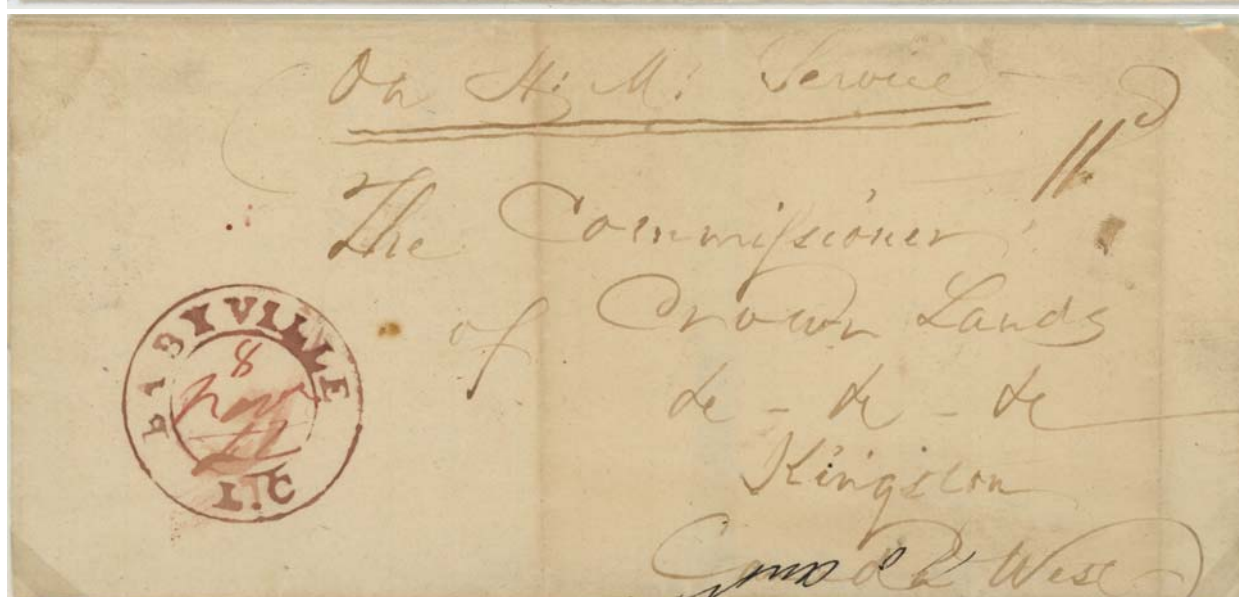 On H: M: Service
11d
The Commissioner
of Crown Lands
&c - &c - &c
Kingston
Canada West
8
Nov
L.C